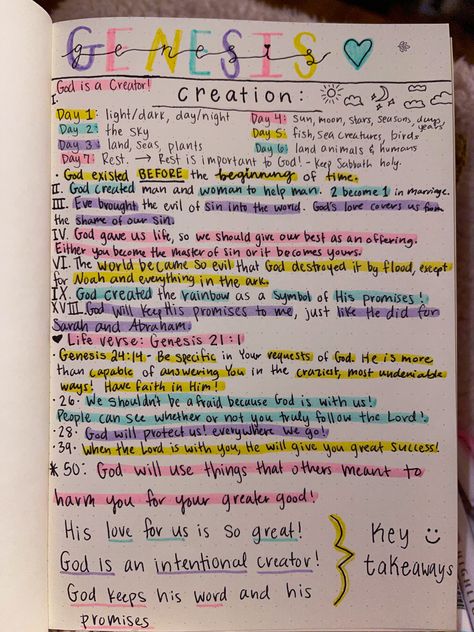 GENESIS
genesis
God is a Creator!
creation:
I.
Day 1: light/dark, day/night
Day 2: the sky
Day 3: land, seas, plants
Day 4: sun, moon, stars, seasons, days, years
Day 5: fish, sea creatures, birds
Day 6: land animals & humans
Day 7: Rest. → Rest is important to God! - Keep Sabbath holy.
· God existed BEFORE the beginning of time.
II. God created man and woman to help man. 2 become 1 in marriage.
III. Eve brought the evil of sin into the world. God's love covers us from
the shame of our sin.
IV. God gave us life, so we should give our best as an offering.
Either you become the master of sin or it becomes yours.
VI. The world became so evil that God destroyed it by flood, except
for Noah and everything in the ark.
IX. God created the rainbow as a symbol of His promises!
XVIII. God will keep His promises to me, just like He did for
Sarah and Abraham.
♥ Life verse: Genesis 21:1
· Genesis 24:14 - Be specific in your requests of God. He is more
than capable of answering you in the craziest, most undeniable
ways! Have faith in Him!
· 26 - We shouldn't be afraid because God is with us!
People can see whether or not you truly follow the Lord!
· 28 - God will protect us! everywhere we go!
· 39 - When the Lord is with you, He will give you great success!
* 50: God will use things that others meant to
harm you for your greater good!
His love for us is so great!
God is an intentional creator!
God keeps his word and his
promises
Key
takeaways